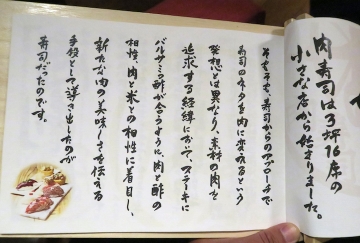 肉寿司は3坪16席の
小さな店から始まりました。
そもそも、寿司からのアプローチで
寿司のネタを肉に変えるという
発想とは異なり、素材の肉を
追求する経緯において、ステーキに
バルサミコ酢が合うように、肉と酢の
相性、肉と米との相性に着目し、
新たな肉の美味しさを伝える
手段として導き出したのが
寿司だったのです。